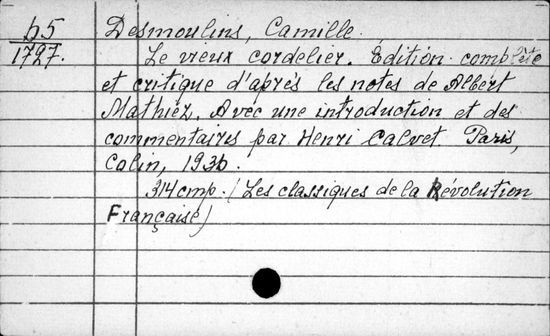 Б5
1727.
Desmoulins, Camille.
Le vieux cordelier. Édition complète
et critique d'après les notes de Albert
Mathiez. Avec une introduction et des
commentaires par Henri Calvet. Paris,
Colin, 1936.
314 стр. (Les classiques de la Révolution
Française)